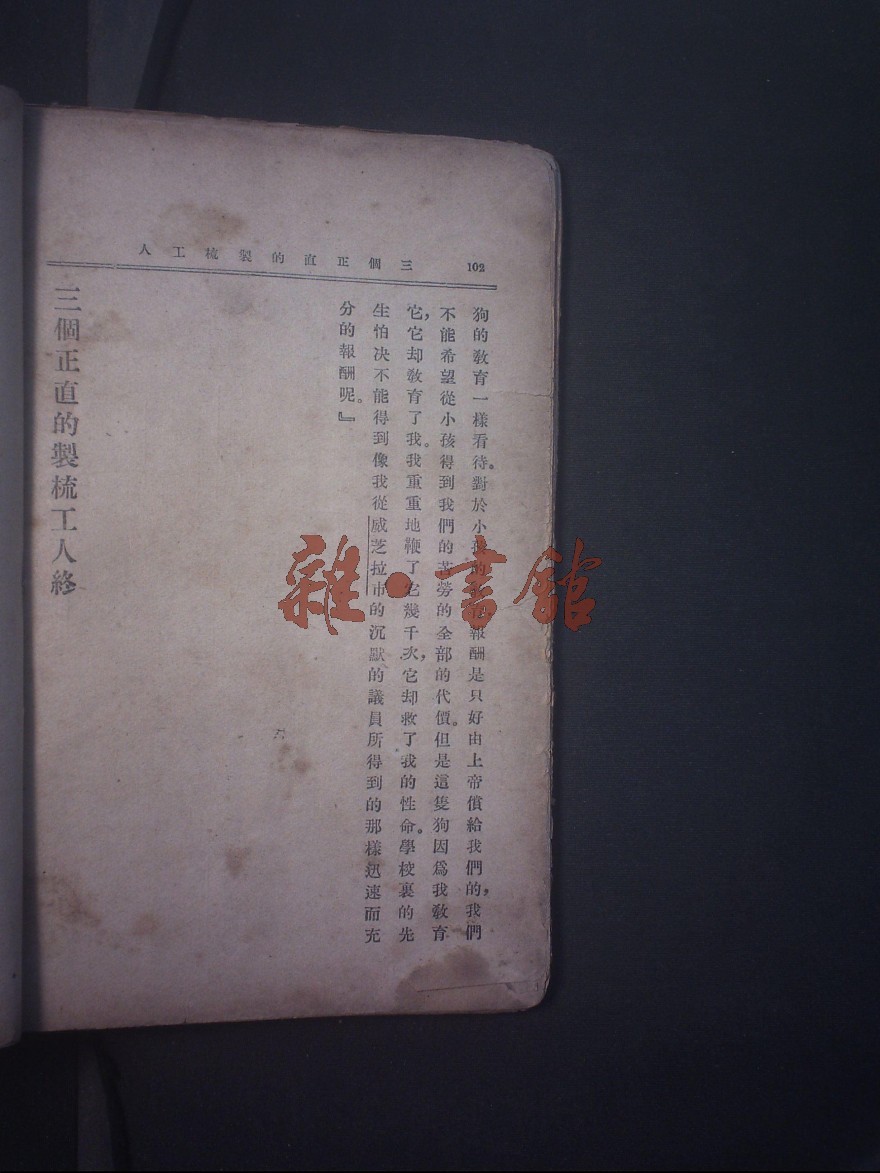 102
三個正直的製梳工人
狗的敎育一樣看待。對於小孩的報酬是只好由上帝償給我們的，我們
不能希望從小孩得到我們的苦勞的全部的代價。但是這隻狗因爲我敎育
它，它却敎育了我。我重重地鞭了它幾千次，它却救了我的性命。學校裏的先
生怕决不能得到像我從威芝拉市的沉默的議員所得到的那樣迅速而充
分的報酬呢。』
三個正直的製梳工人終
雜·書館